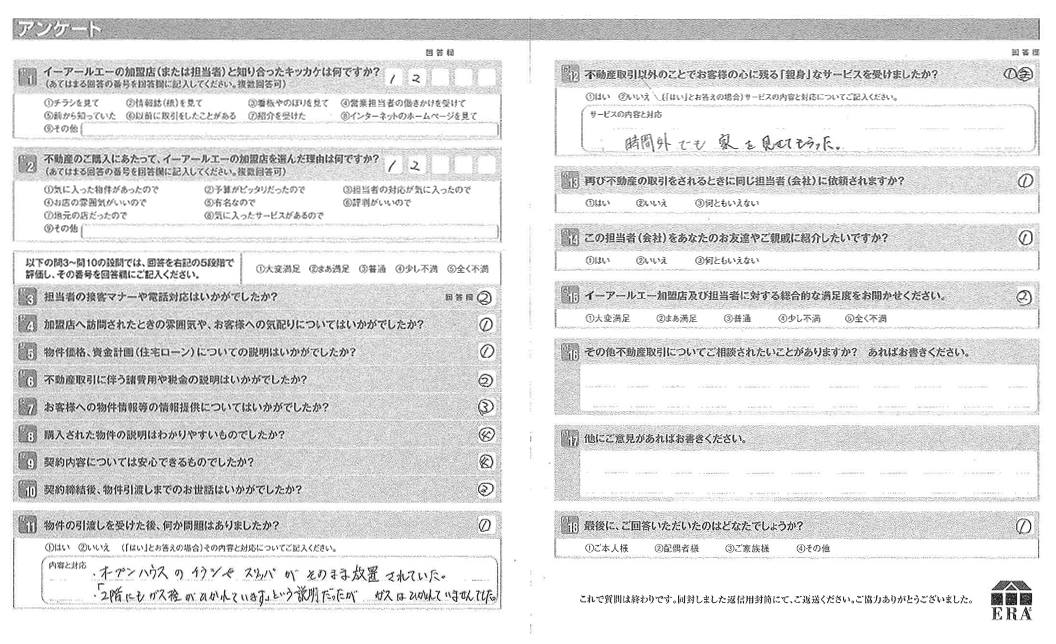 アンケート
回答欄
問1 イーアールエーの加盟店(または担当者)と知り合ったキッカケは何ですか? 1 2
(あてはまる回答の番号を回答欄に記入してください。複数回答可)
①チラシを見て ②情報誌(紙)を見て ③看板やのぼりを見て ④営業担当者の働きかけを受けて
⑤前から知っていた ⑥以前に取引をしたことがある ⑦紹介を受けた ⑧インターネットのホームページを見て
⑨その他
問2 不動産のご購入にあたって、イーアールエーの加盟店を選んだ理由は何ですか? 1 2
(あてはまる回答の番号を回答欄に記入してください。複数回答可)
①気に入った物件があったので ②予算がピッタリだったので ③担当者の対応が気に入ったので
④お店の雰囲気がいいので ⑤有名なので ⑥評判がいいので
⑦地元の店だったので ⑧気に入ったサービスがあるので
⑨その他
以下の問3~問10の設問では、回答を右記の5段階で
評価し、その番号を回答欄にご記入ください。
①大変満足 ②まあ満足 ③普通 ④少し不満 ⑤全く不満
問3 担当者の接客マナーや電話対応はいかがでしたか? 回答欄 ②
問4 加盟店へ訪問されたときの雰囲気や、お客様への気配りについてはいかがでしたか? ①
問5 物件価格、資金計画(住宅ローン)についての説明はいかがでしたか? ①
問6 不動産取引に伴う諸費用や税金の説明はいかがでしたか? ②
問7 お客様への物件情報等の情報提供についてはいかがでしたか? ③
問8 購入された物件の説明はわかりやすいものでしたか?
問9 契約内容については安心できるものでしたか?
問10 契約締結後、物件引渡しまでのお世話はいかがでしたか? ②
問11 物件の引渡しを受けた後、何か問題はありましたか? ①
①はい ②いいえ (「はい」とお答えの場合)その内容と対応についてご記入ください。
内容と対応
・オープンハウスのチラシやスリッパがそのまま放置されていた。
・「2階にもガス栓がひかれています」という説明だったが ガスはひかれていませんでした。
回答欄
問12 不動産取引以外のことでお客様の心に残る「親身」なサービスを受けましたか? ①
①はい ②いいえ (「はい」とお答えの場合)サービスの内容と対応についてご記入ください。
サービスの内容と対応
時間外でも 家を見せてもらった。
問13 再び不動産の取引をされるときに同じ担当者(会社)に依頼されますか? ①
①はい ②いいえ ③何ともいえない
問14 この担当者(会社)をあなたのお友達やご親戚に紹介したいですか? ①
①はい ②いいえ ③何ともいえない
問15 イーアールエー加盟店及び担当者に対する総合的な満足度をお聞かせください。 ②
①大変満足 ②まあ満足 ③普通 ④少し不満 ⑤全く不満
問16 その他不動産取引についてご相談されたいことがありますか? あればお書きください。
問17 他にご意見があればお書きください。
問18 最後に、ご回答いただいたのはどなたでしょうか? ①
①ご本人様 ②配偶者様 ③ご家族様 ④その他
これで質問は終わりです。同封しました返信用封筒にて、ご返送ください。ご協力ありがとうございました。
ERA